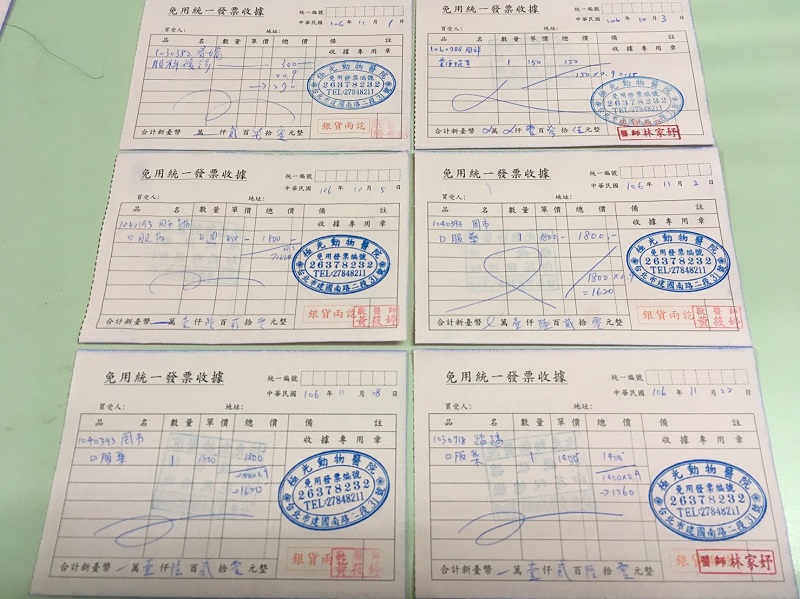 免用統一發票收據
統一編號
中華民國 106 年 11 月 1 日
買受人： 地址：
品 名 數量 單價 總價 備 註
收據專用章
300
極光動物醫院
免用發票編號
26378232
TEL:27848211
台北市建國南路二段31號
合計新臺幣 萬 仟 貳 百 拾 元整
銀貨兩訖
免用統一發票收據
統一編號
中華民國 106 年 10 月 3 日
買受人： 地址：
品 名 數量 單價 總價 備 註
收據專用章
1 150 150
150×0.9=135
極光動物醫院
免用發票編號
26378232
TEL:27848211
合計新臺幣 萬 仟 壹 百 拾 元整
醫師 林家妤
免用統一發票收據
統一編號
中華民國 106 年 12 月 5 日
買受人： 地址：
品 名 數量 單價 總價 備 註
收據專用章
1040393
1800
極光動物醫院
免用發票編號
26378232
TEL:27848211
台北市建國南路二段31號
合計新臺幣 萬 壹 仟 陸 百 貳 拾 零 元整
銀貨兩訖
免用統一發票收據
統一編號
中華民國 106 年 11 月 2 日
買受人： 地址：
品 名 數量 單價 總價 備 註
收據專用章
1040393 周市
口服藥 1 1800 1800
1800×0.9
=1620
極光動物醫院
免用發票編號
26378232
TEL:27848211
台北市建國南路二段31號
合計新臺幣 萬 壹 仟 陸 百 貳 拾 零 元整
銀貨兩訖
免用統一發票收據
統一編號
中華民國 106 年 11 月 28 日
買受人： 地址：
品 名 數量 單價 總價 備 註
收據專用章
1040393 周市
口服藥 1 1800 1800
1800×0.9
=1620
極光動物醫院
免用發票編號
26378232
TEL:27848211
台北市建國南路二段31號
合計新臺幣 萬 壹 仟 陸 百 貳 拾 零 元整
銀貨兩
免用統一發票收據
統一編號
中華民國 106 年 11 月 22 日
買受人： 地址：
品 名 數量 單價 總價 備 註
收據專用章
1030918
口服藥 1 1400 1400
1400×0.9
1260
極光動物醫院
免用發票編號
26378232
TEL:27848211
台北市建國南路二段31號
合計新臺幣 萬 壹 仟 貳 百 陸 拾 零 元整
銀貨
醫師 林家妤